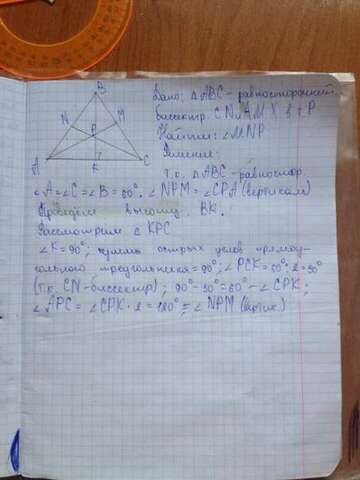 B
N
M
P
A
K
C
Дано: △ABC - равносторонний
биссектр. CN и AM X в т. P
Найти: ∠MNP
Решение:
т.о. △ABC - равностор.
∠A=∠C=∠B=60°. ∠NPM=∠CPA (вертикал)
Проведём высоту BK.
Рассмотрим △ KPC
∠K=90°; сумма острых углов прямоу-
гольного треугольника=90°; ∠PCK=60°:2=30°
(т.к. CN-биссектр); 90°-30°=60°-∠CPK;
∠APC=∠CPK·2=120°=∠NPM (вертик.)